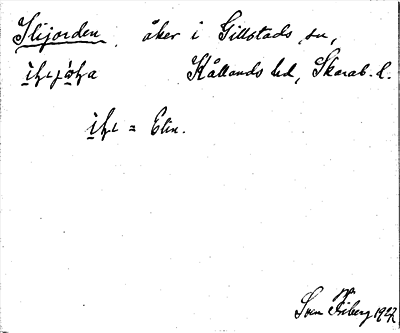 Ilijorden, åker i Gillstads sn,
Kållands hd, Skarab. l.
= Elin.
Sven Friberg 1927.